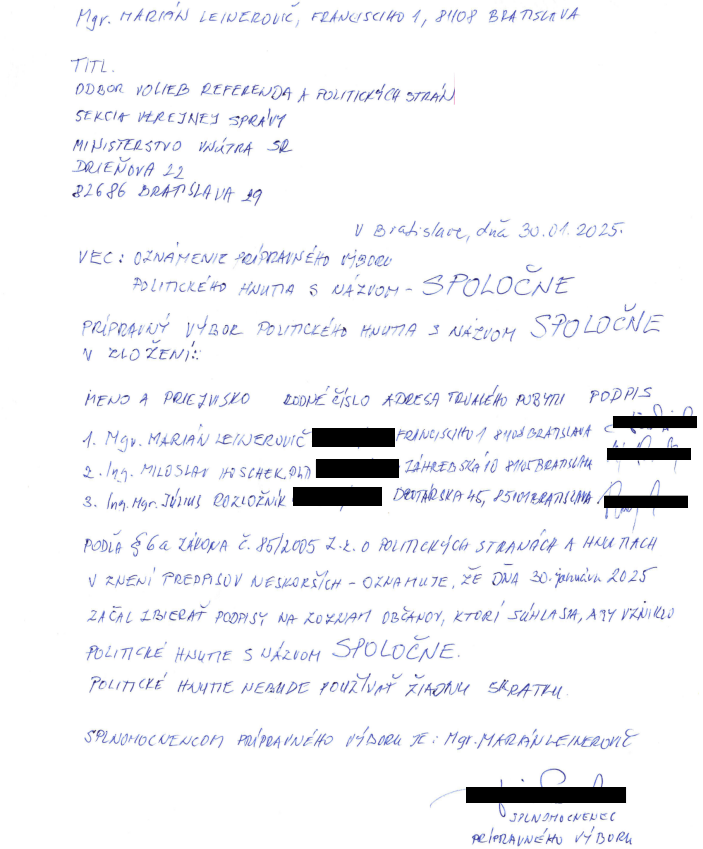 Mgr. MARIÁN LEINEROVIČ, FRANCISCIHO 1, 81108 BRATISLAVA
TITL.
ODBOR VOLIEB REFERENDA A POLITICKÝCH STRÁN
SEKCIA VEREJNEJ SPRÁVY
MINISTERSTVO VNÚTRA SR
DRIEŇOVA 22
82686 BRATISLAVA 29
V Bratislave, dňa 30.01.2025.
VEC: OZNÁMENIE PRÍPRAVNÉHO VÝBORU
POLITICKÉHO HNUTIA S NÁZVOM - SPOLOČNE
PRÍPRAVNÝ VÝBOR POLITICKÉHO HNUTIA S NÁZVOM SPOLOČNE
V ZLOŽENÍ:
MENO A PRIEZVISKO RODNÉ ČÍSLO ADRESA TRVALÉHO POBYTU PODPIS
1. Mgr. MARIÁN LEINEROVIČ FRANCISCIHO 1 81108 BRATISLAVA
2. Ing. MILOSLAV HOSCHEK, PhD ZÁHREBSKÁ 10 81105 BRATISLAVA
3. Ing. Mgr. JÚLIUS ROZLOŽNÍK DROTÁRSKA 45, 85101 BRATISLAVA
PODĽA § 6a ZÁKONA Č. 85/2005 Z.z. O POLITICKÝCH STRANÁCH A HNUTIACH
V ZNENÍ PREDPISOV NESKORŠÍCH - OZNAMUJE, ŽE DŇA 30. januára 2025
ZAČAL ZBIERAŤ PODPISY NA ZOZNAM OBČANOV, KTORÍ SÚHLASIA, ABY VZNIKLO
POLITICKÉ HNUTIE S NÁZVOM SPOLOČNE.
POLITICKÉ HNUTIE NEBUDE POUŽÍVAŤ ŽIADNU SKRATKU.
SPLNOMOCNENCOM PRÍPRAVNÉHO VÝBORU JE: Mgr. MARIÁN LEINEROVIČ
SPLNOMOCNENEC
PRÍPRAVNÉHO VÝBORU